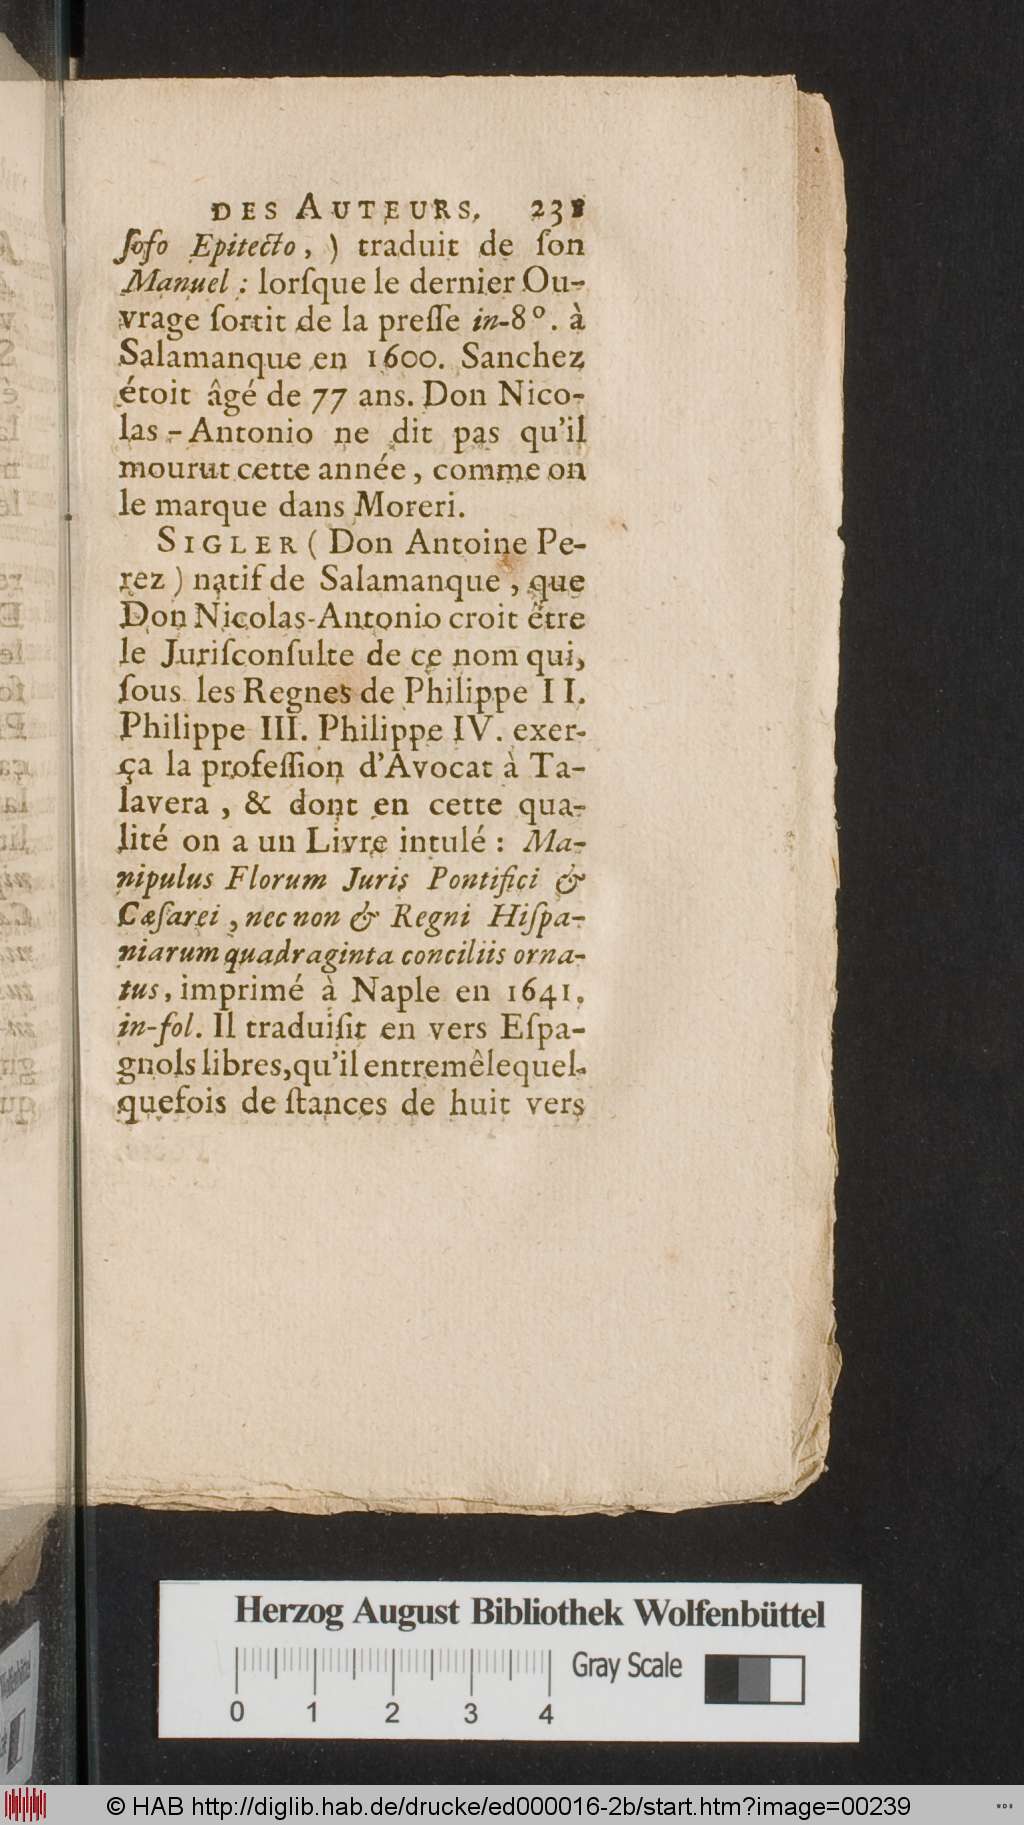 DES AUTEURS, 231
ſofo Epitecto, ) traduit de ſon
Manuel : lorſque le dernier Ou-
vrage ſortit de la preſſe in-8°. à
Salamanque en 1600. Sanchez
étoit âgé de 77 ans. Don Nico-
las-Antonio ne dit pas qu'il
mourut cette année, comme on
le marque dans Moreri.
SIGLER ( Don Antoine Pe-
rez ) natif de Salamanque, que
Don Nicolas-Antonio croit être
le Juriſconſulte de ce nom qui,
ſous les Regnes de Philippe II.
Philippe III. Philippe IV. exer-
ça la profeſſion d'Avocat à Ta-
lavera, & dont en cette qua-
lité on a un Livre intulé : Ma-
nipulus Florum Juris Pontifici &
Cæſarei, nec non & Regni Hiſpa-
niarum quadraginta conciliis orna-
tus, imprimé à Naple en 1641,
in-fol. Il traduiſit en vers Eſpa-
gnols libres, qu'il entremêle quel-
quefois de ſtances de huit vers
Herzog August Bibliothek Wolfenbüttel
Gray Scale
0 1 2 3 4
© HAB http://diglib.hab.de/drucke/ed000016-2b/start.htm?image=00239